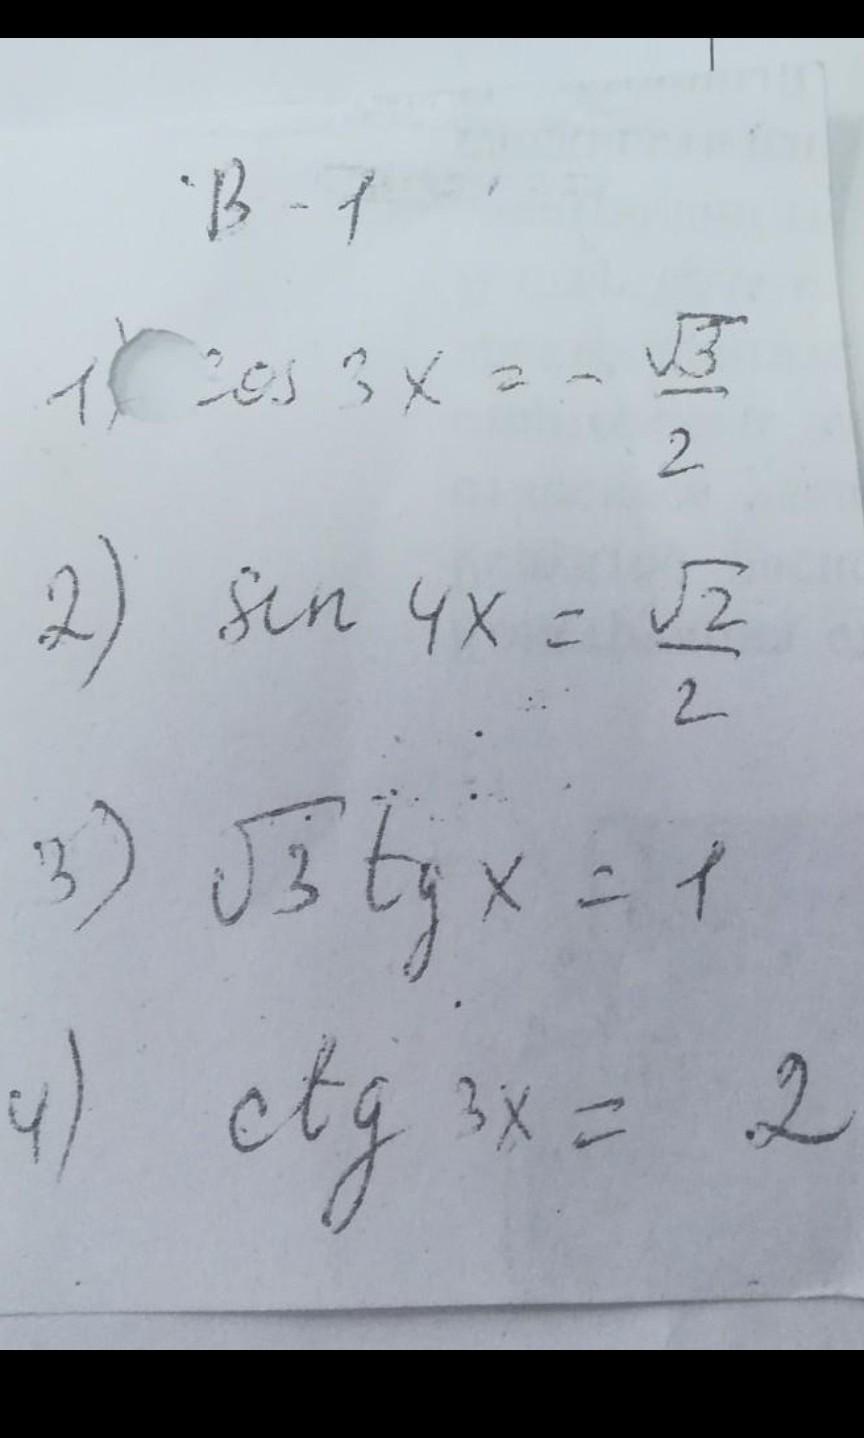 В - 1
1) cos 3x = - √3/2
2) sin 4x = √2/2
3) √3 tg x = 1
4) ctg 3x = 2